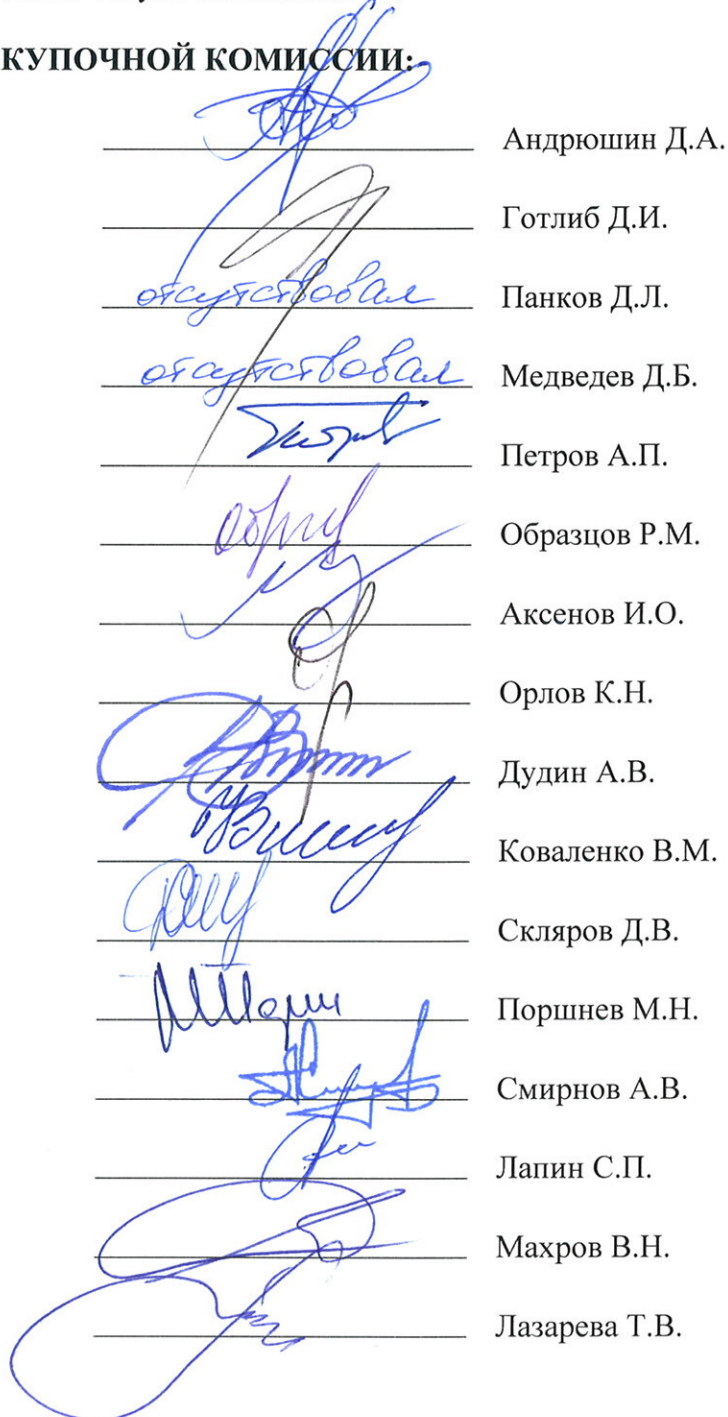 КУПОЧНОЙ КОМИССИИ:
Андрюшин Д.А.
Готлиб Д.И.
отсутствовал Панков Д.Л.
отсутствовал Медведев Д.Б.
Петров А.П.
Образцов Р.М.
Аксенов И.О.
Орлов К.Н.
Дудин А.В.
Коваленко В.М.
Скляров Д.В.
Поршнев М.Н.
Смирнов А.В.
Лапин С.П.
Махров В.Н.
Лазарева Т.В.